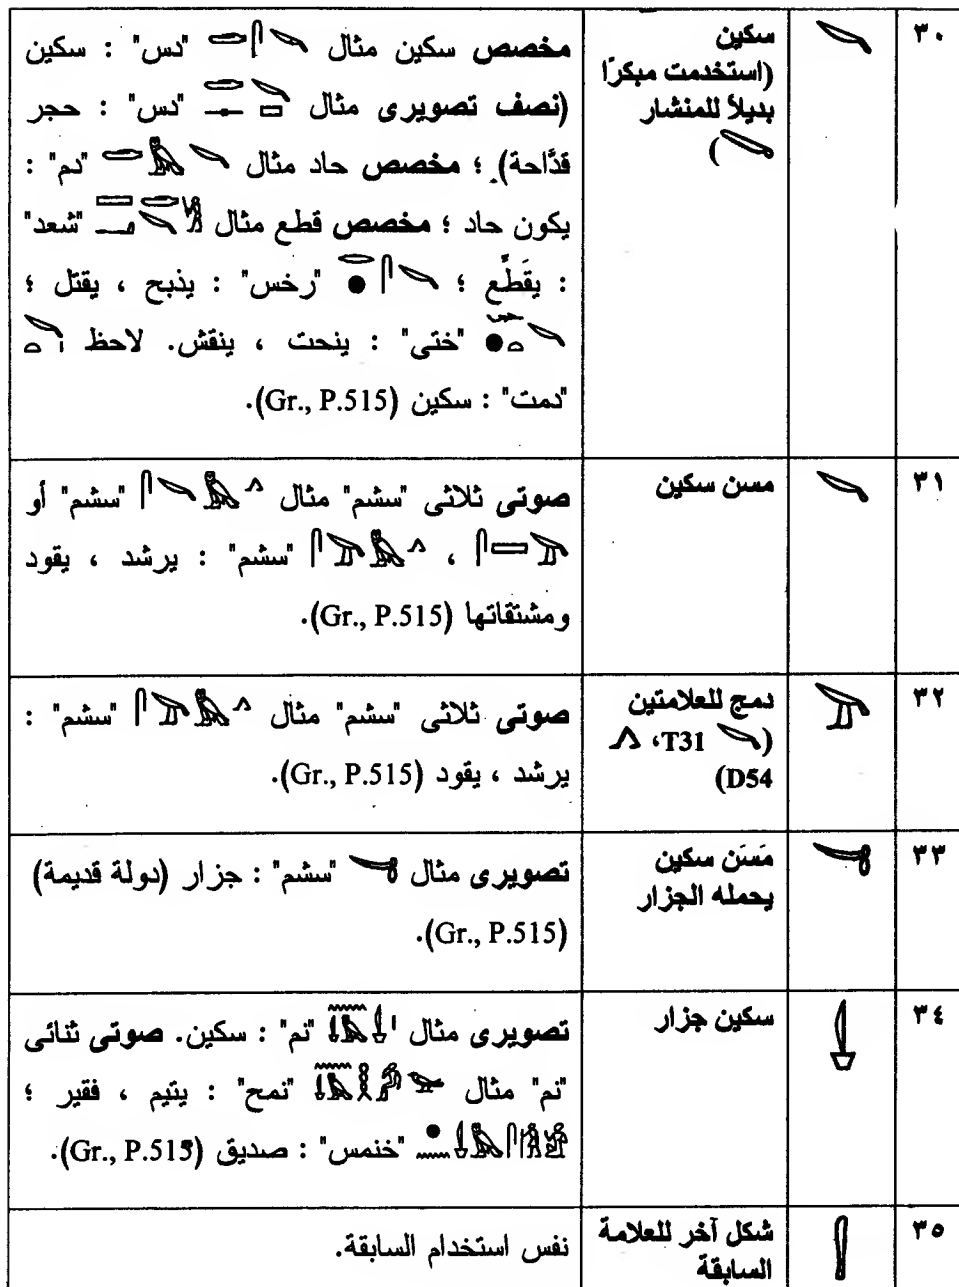 ٣٠
سكين
(استخدمت مبكرًا
بديلاً للمنشار
)
مخصص سكين مثال "دس" : سكين
(نصف تصويرى مثال "دس" : حجر
قدَّاحة) ؛ مخصص حاد مثال "دم" :
يكون حاد ؛ مخصص قطع مثال "شعد"
: يقَطَّع ؛ "رخس" : يذبح ، يقتل ؛
"ختى" : ينحت ، ينقش. لاحظ
"دمت" : سكين (Gr., P.515).
٣١
مسن سكين
صوتى ثلاثى "سشم" مثال "سشم" أو
، "سشم" : يرشد ، يقود
ومشتقاتها (Gr., P.515).
٣٢
دمج للعلامتين
(T31 ،
D54)
صوتى ثلاثى "سشم" مثال "سشم" :
يرشد ، يقود (Gr., P.515).
٣٣
مَسَن سكين
يحمله الجزار
تصويرى مثال "سشم" : جزار (دولة قديمة)
(Gr., P.515).
٣٤
سكين جزار
تصويرى مثال "نم" : سكين. صوتى ثنائى
"نم" مثال "نمح" : يتيم ، فقير ؛
"خنمس" : صديق (Gr., P.515).
٣٥
شكل آخر للعلامة
السابقة
نفس استخدام السابقة.